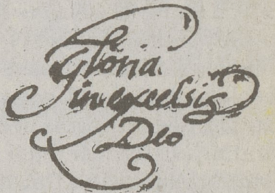 Gloria
in excelsis
Deo